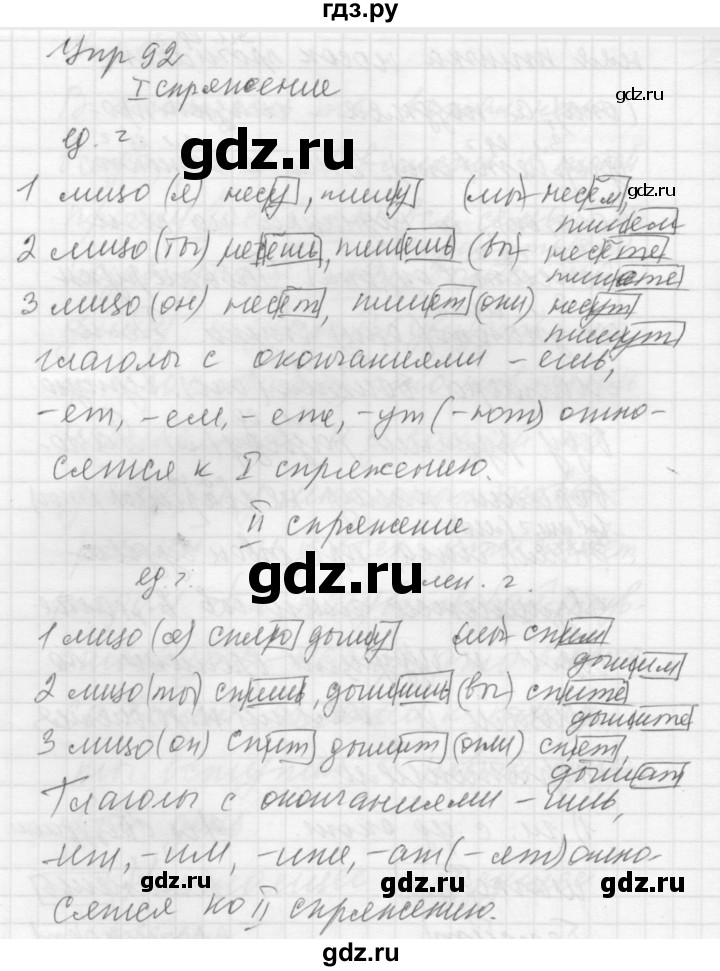 гдз.ру
Упр 92
I спряжение
gdz.ru
ед. ч.
gdz.ru
1 лицо (я) несу, пишу (мы) несём,
gdz.ru
пишем
2 лицо (ты) несёшь, пишешь (вы) несёте
пишете
3 лицо (он) несёт, пишет (они) несут
пишут
глаголы с окончаниями -ешь,
-ет, -ем, -ете, -ут (-ют) отно-
сятся к I спряжению.
II спряжение
gdz.ru
ед. ч. мн. ч.
1 лицо (я) сплю дышу (мы) спим
дышим
2 лицо (ты) спишь, дышишь (вы) спите
дышите
3 лицо (он) спит дышит (они) спят,
дышат
Глаголы с окончаниями -ишь,
-ит, -им, -ите, -ат (-ят) отно-
gdz.ru gdz.ru
сятся ко II спряжению.
gdz.ru